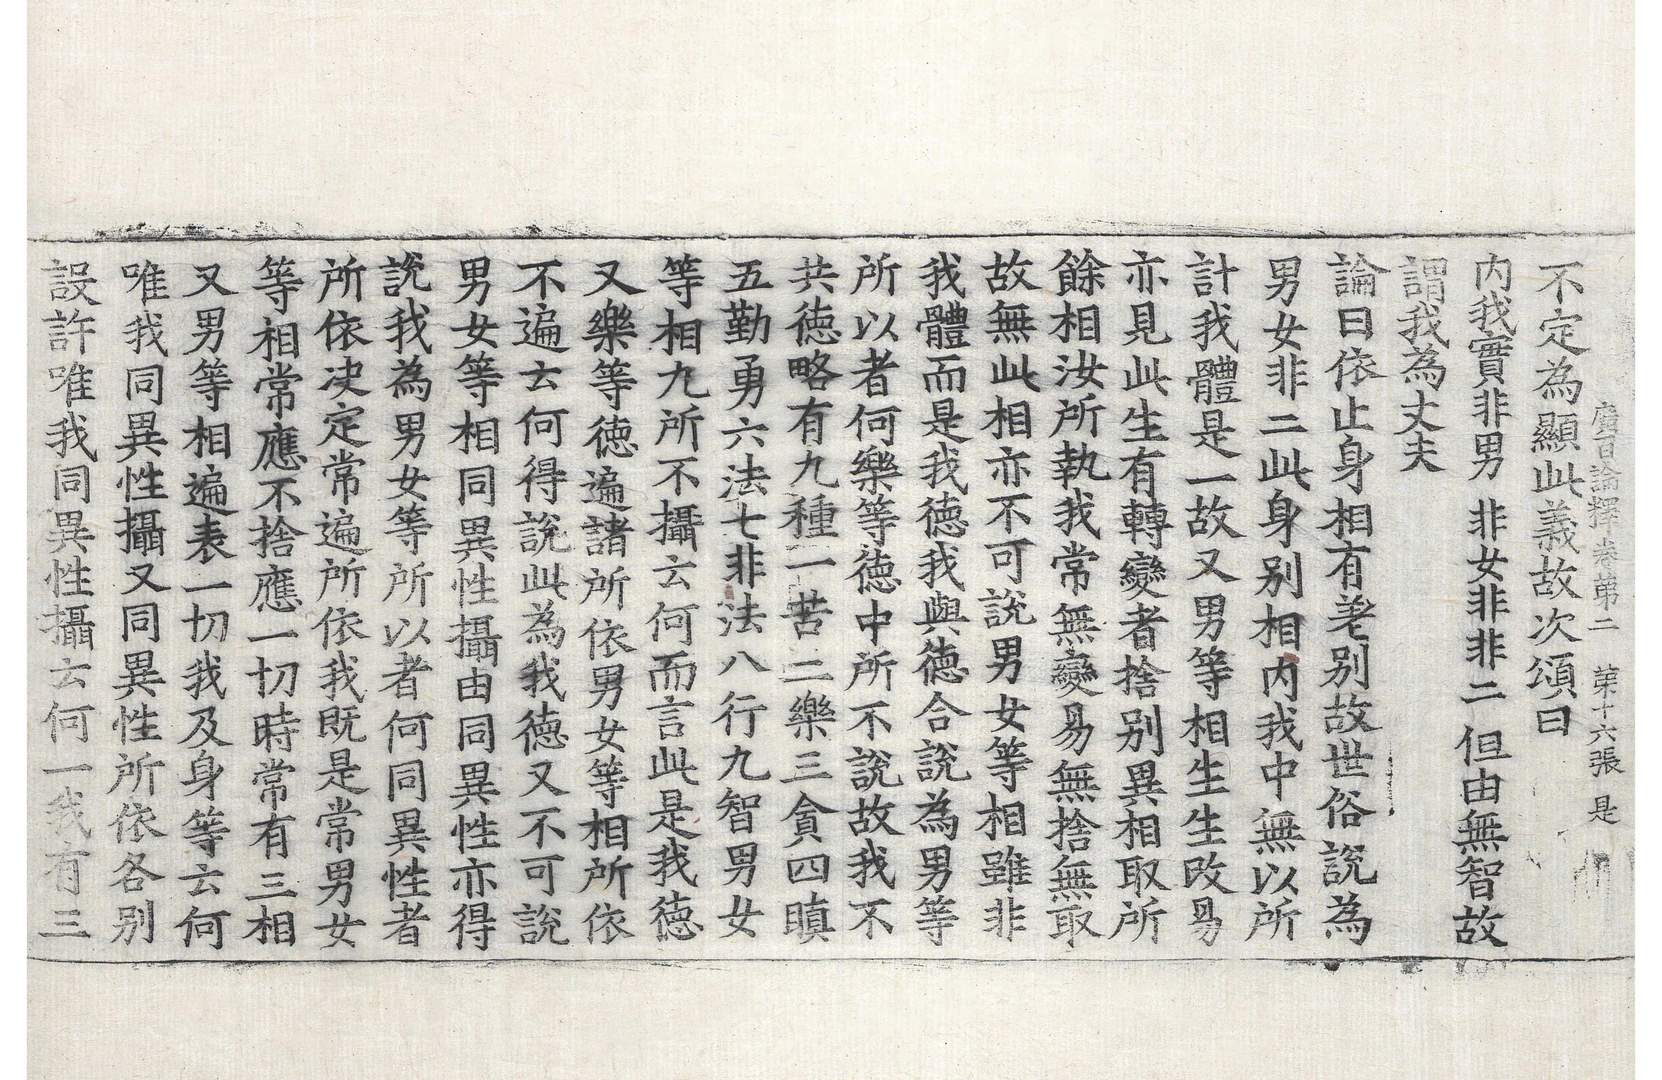 廣百論釋卷第二　第十六張　是
不定為顯此義故次頌曰
内我實非男　非女非非二　但由無智故
謂我為丈夫
論曰依止身相有差别故世俗說為
男女非二此身别相内我中無以所
計我體是一故又男等相生生改易
亦見此生有轉變者捨别異相取所
餘相汝所執我常無變易無捨無取
故無此相亦不可說男女等相雖非
我體而是我徳我與徳合說為男等
所以者何樂等徳中所不說故我不
共徳略有九種一苦二樂三貪四瞋
五勤勇六法七非法八行九智男女
等相九所不攝云何而言此是我徳
又樂等徳遍諸所依男女等相所依
不遍云何得說此為我徳又不可說
男女等相同異性攝由同異性亦得
說我為男女等所以者何同異性者
所依决定常遍所依我既是常男女
等相常應不捨應一切時常有三相
又男等相遍表一切我及身等云何
唯我同異性攝又同異性所依各别
設許唯我同異性攝云何一我有三